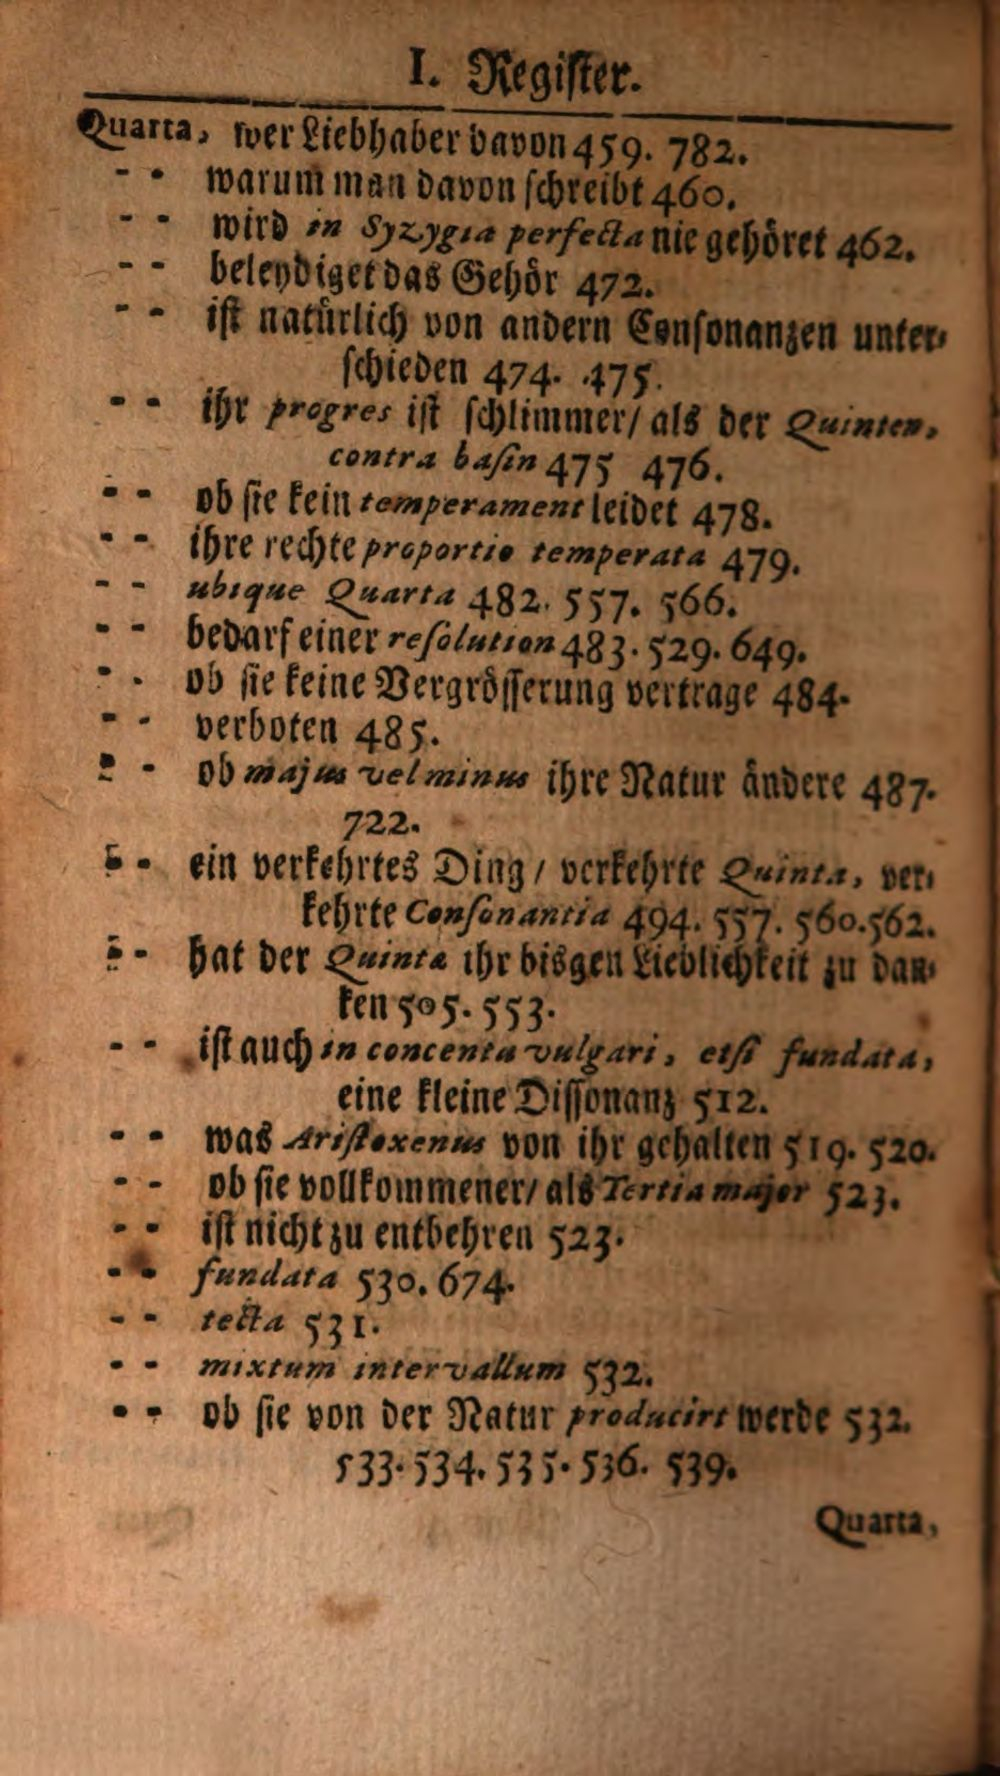 I. Regiſter.
Quarta, wer Liebhaber davon 459. 782.
- - warum man davon ſchreibt 460.
- - wird in Syzygia perfecta nie gehöret 462.
- - beleydiget das Gehör 472.
- - iſt natürlich von andern Conſonanzen unter-
ſchieden 474. 475.
- - ihr progres iſt ſchlimmer/ als der Quinten,
contra baſin 475 476.
- - ob ſie kein temperament leidet 478.
- - ihre rechte proportio temperata 479.
- - ubique Quarta 482. 557. 566.
- - bedarf einer reſolution 483. 529. 649.
- - ob ſie keine Vergröſſerung vertrage 484.
- - verboten 485.
- - ob majus vel minus ihre Natur ändere 487.
722.
- - ein verkehrtes Ding / verkehrte Quinta, ver-
kehrte Conſonantia 494. 557. 560. 562.
- - hat der Quinta ihr bisgen Lieblichkeit zu dan-
ken 505. 553.
- - iſt auch in concentu vulgari, etſi fundata,
eine kleine Diſſonanz 512.
- - was Ariſtoxenus von ihr gehalten 519. 520.
- - ob ſie vollkommener/ als Tertia major 523.
- - iſt nicht zu entbehren 523.
- - fundata 530. 674.
- - tecta 531.
- - mixtum intervallum 532.
- - ob ſie von der Natur producirt werde 532.
533. 534. 535. 536. 539.
Quarta,